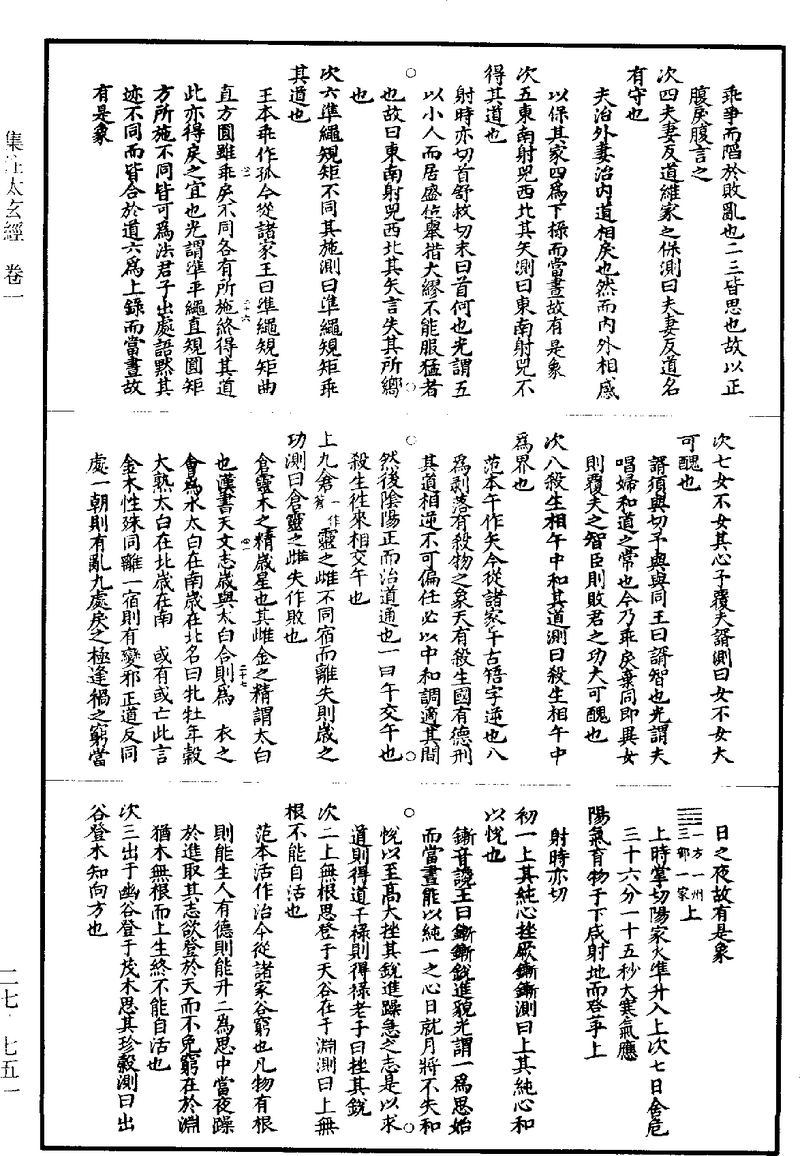 乖爭而陷於敗亂也二三皆思也故以正
腹戾腹言之
次四夫妻反道維家之保測曰夫妻反道名
有守也
夫治外妻治內道相戾也然而內外相感
以保其家四爲下祿而當晝故有是象
次五東南射兕西北其矢測曰東南射兕不
得其道也
射時亦切首舒救切宋曰首何也光謂五
以小人而居盛位舉措大繆不能服猛者
也故曰東南射兕西北其矢言失其所嚮
也
次六準繩規矩不同其施測曰準繩規矩乖
其道也
王本乖作孤今從諸家王曰準繩規矩曲
直方圓雖乖戾不同各有所施終得其道
此亦得戾之宜也光謂準平繩直規圓矩
方所施不同皆可爲法君子出處語默其
迹不同而皆合於道六爲上祿而當晝故
有是象
次七女不女其心予覆夫谞測曰女不女大
可醜也
谞須與切予與與同王曰谞智也光謂夫
唱婦和道之常也今乃乖戾棄同即異女
則覆夫之智臣則敗君之功大可醜也
次八殺生相午中和其道測曰殺生相午中
爲界也
范本午作矢今從諸家午古牾字逆也八
爲剝落有殺物之象天有殺生國有德刑
其道相逆不可偏任必以中和調適其間
然後陰陽正而治道通也一曰午交午也
殺生往來相交午也
上九倉一作蒼靈之雌不同宿而離失則歲之
功測曰倉靈之雌失作敗也
倉靈木之精歲星也其雌金之精謂太白
也漢書天文志歲與太白合則爲 衣之
會爲水太白在南歲在北名曰牝牡年穀
大熟太白在北歲在南 或有或亡此言
金木性殊同離一宿則有變邪正道反同
處一朝則有亂九處戾之極逢禍之窮當
日之夜故有是象
一方一州三部一家上
上時掌切陽家火準升入上次七日舍危
三十六分一十五秒大寒氣應
陽氣育物于下咸射地而登乎上
射時亦切
初一上其純心挫厥鏩鏩測曰上其純心和
以悅也
鏩音讒王曰鏩鏩銳進貌光謂一爲思始
而當晝能以純一之心日就月將不失和
悅以至高大挫其銳進躁急之志是以求
道則得道干祿則得祿老子曰挫其銳
次二上無根思登于天谷在于淵測曰上無
根不能自活也
范本活作治今從諸家谷窮也凡物有根
則能生人有德則能升二為思中當夜躁
於進取其志欲登於天而不免窮在於淵
猶木無根而上生終不能自活也
次三出于幽谷登于茂木思其珍穀測曰出
谷登木知向方也
集注太玄經 卷一
二七·七五一
二十六
二十七